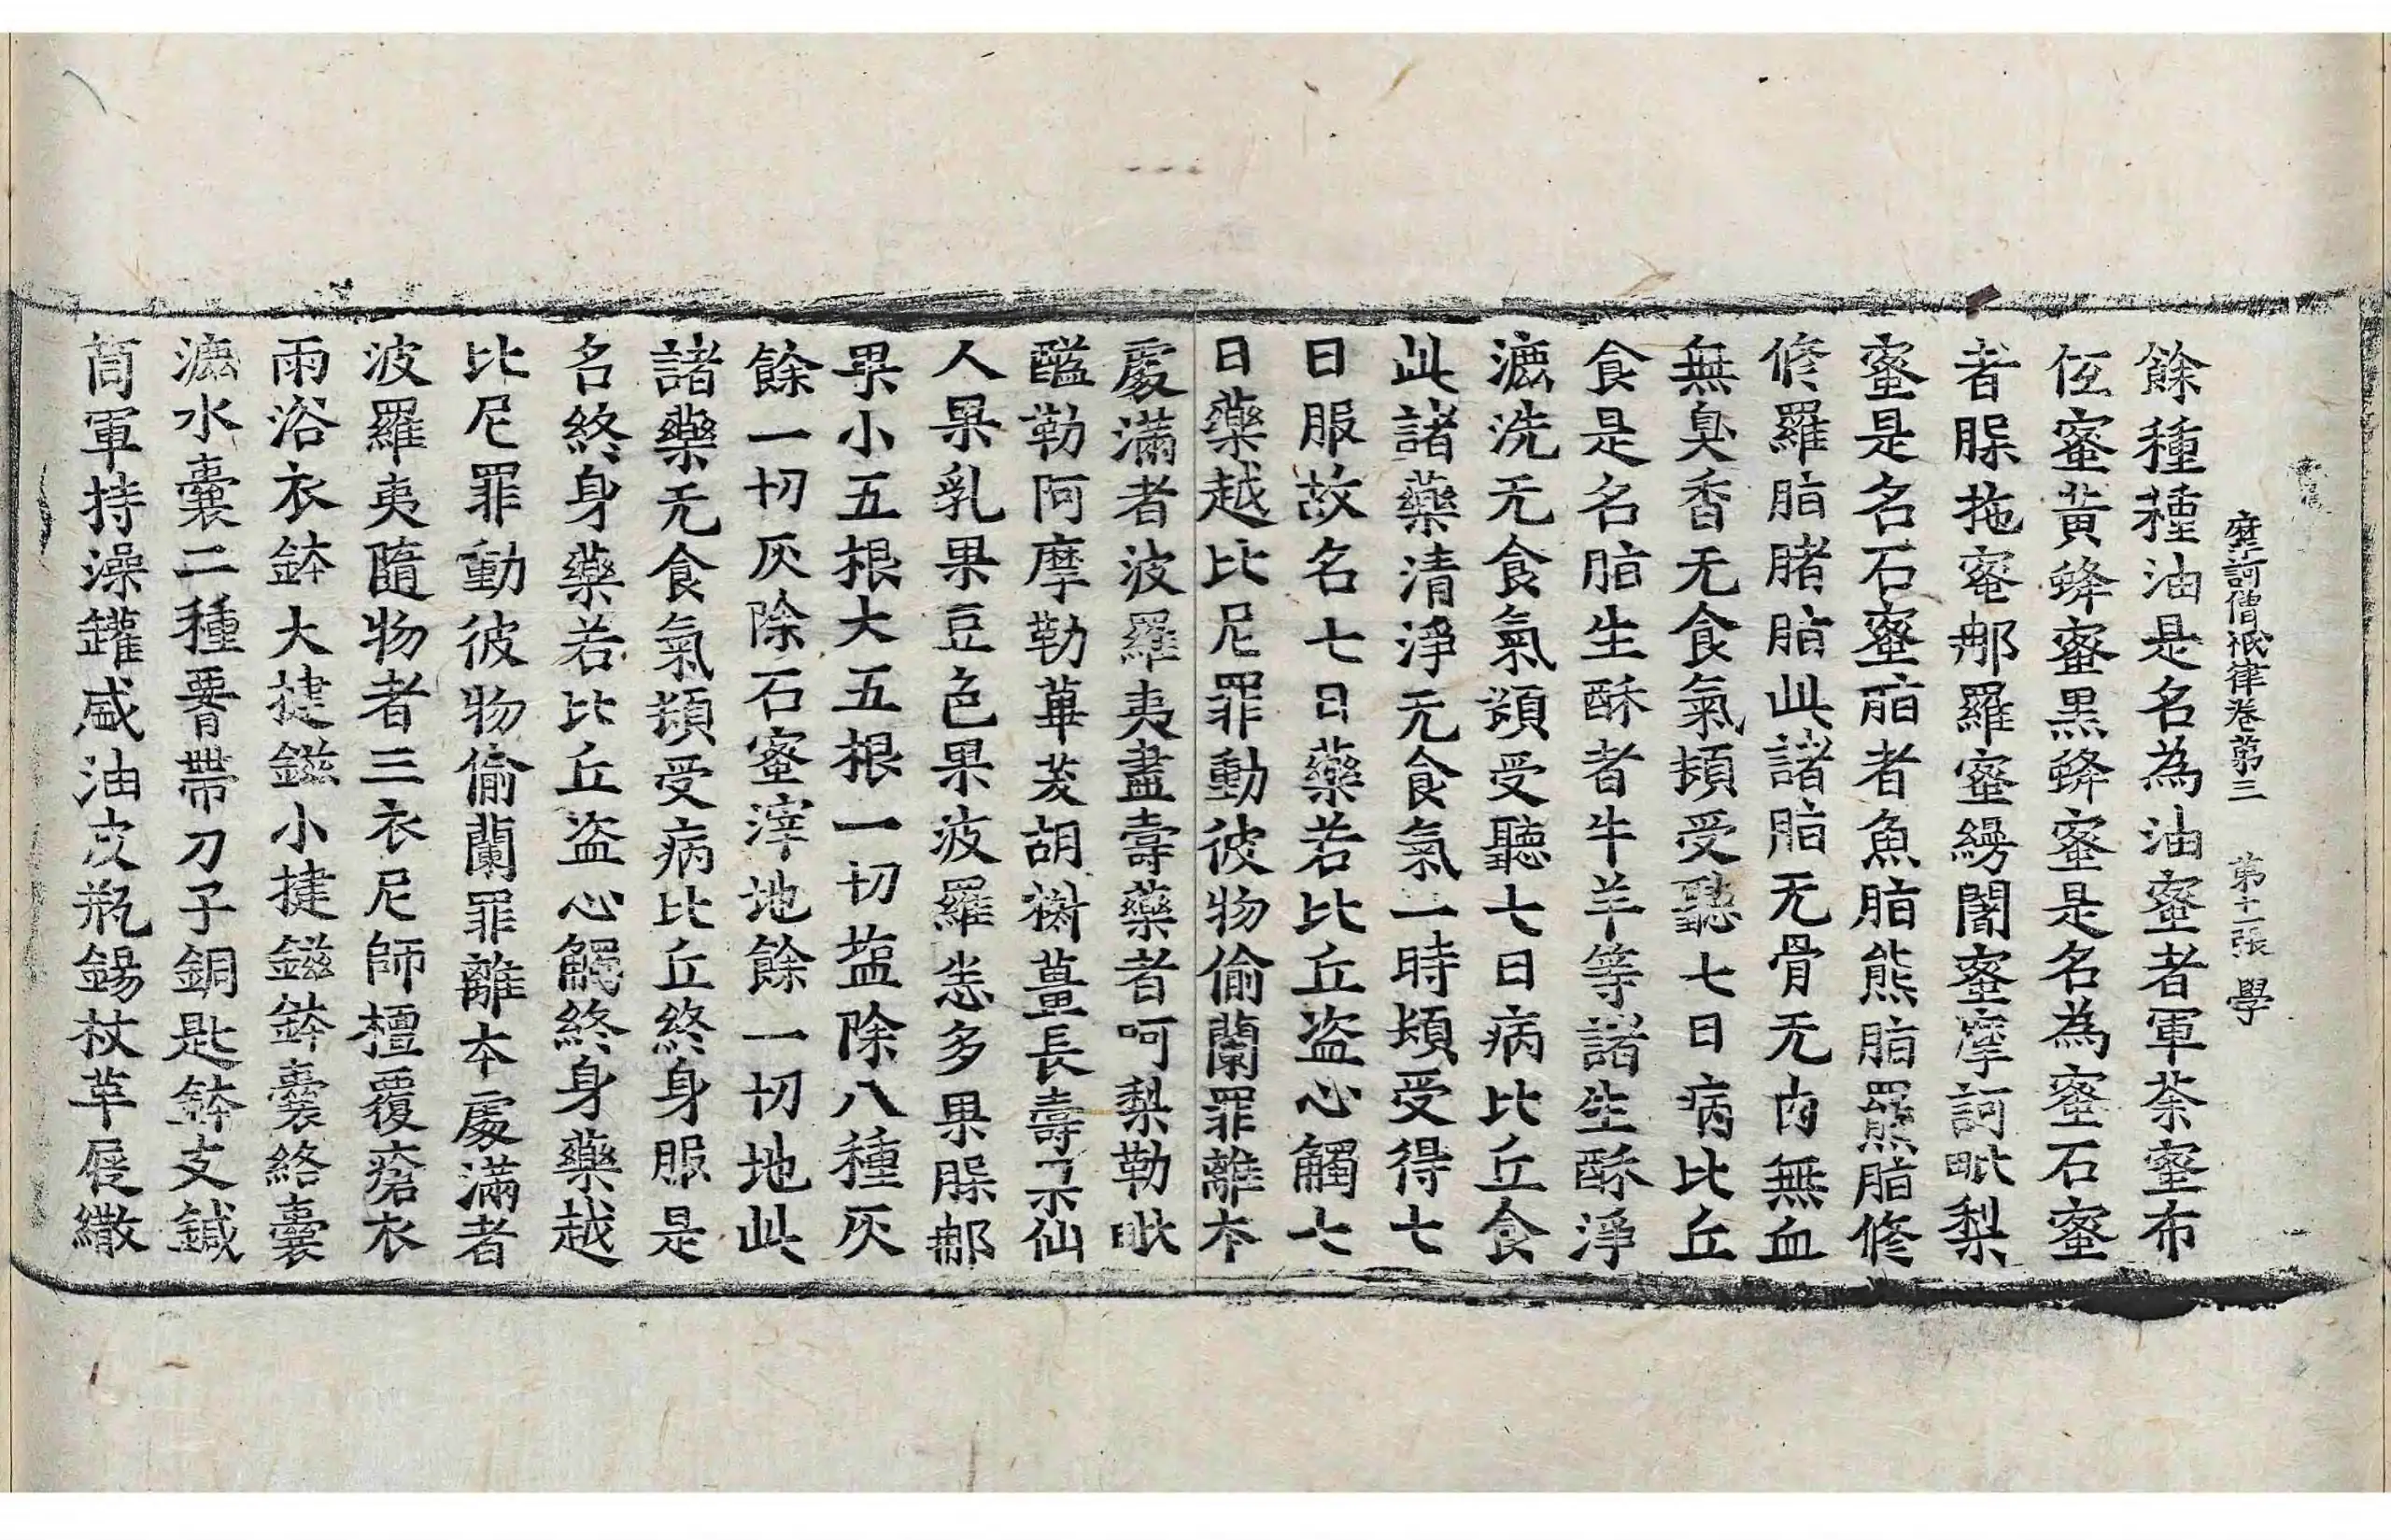 摩訶僧祇律卷第三 第十一張 學
餘種種油是名為油蜜者軍荼蜜布
伍蜜黃蜂蜜黑蜂蜜是名為蜜石蜜
者䐗拖蜜𨙻羅蜜縵闍蜜摩訶毗梨
蜜是名石蜜脂者魚脂熊脂羆脂修
修羅脂豬脂此諸脂无骨无肉無血
無臭香无食氣頓受聽七日病比丘
食是名脂生酥者牛羊等諸生酥淨
漉洗无食氣頓受聽七日病比丘食
此諸藥清淨无食氣一時頓受得七
日服故名七日藥若比丘盜心觸七
日藥越比尼罪動彼物偷蘭罪離本
處滿者波羅夷盡壽藥者呵梨勒毗
醯勒阿摩勒蓽茇胡椒薑長壽果仙
人果乳果豆色果波羅恙多果䐗𨙻
果小五根大五根一切塩除八種灰
餘一切灰除石蜜滓地餘一切地此
諸藥无食氣頓受病比丘終身服是
名終身藥若比丘盜心觸終身藥越
比尼罪動彼物偷蘭罪離本處滿者
波羅夷隨物者三衣尼師檀覆瘡衣
雨浴衣鉢大揵鎡小揵鎡鉢囊絡囊
漉水囊二種腰帶刀子銅匙鉢支鍼
筒軍持澡罐盛油皮瓶錫杖革屣繖